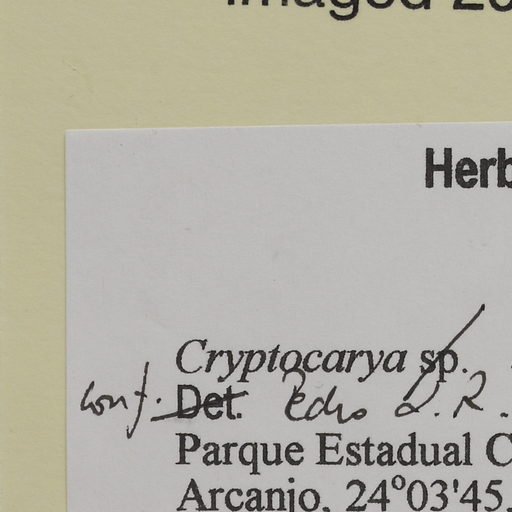 Imaged 20
Herb
Cryptocarya sp.
conf. Det. Pedro L.R.
Parque Estadual C
Arcanjo, 24°03'45,